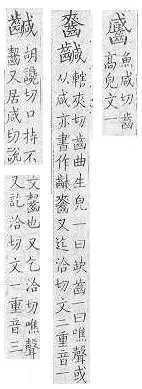 魚咸切齒
高皃文一
轄夾切齒曲生皃一曰缺齒一曰噍聲或
从咸亦書作又迄洽切文二重音一
胡讒切口持不
齧又居咸切說
文齧也又乞洽切噍聲
又訖洽切文一重音三